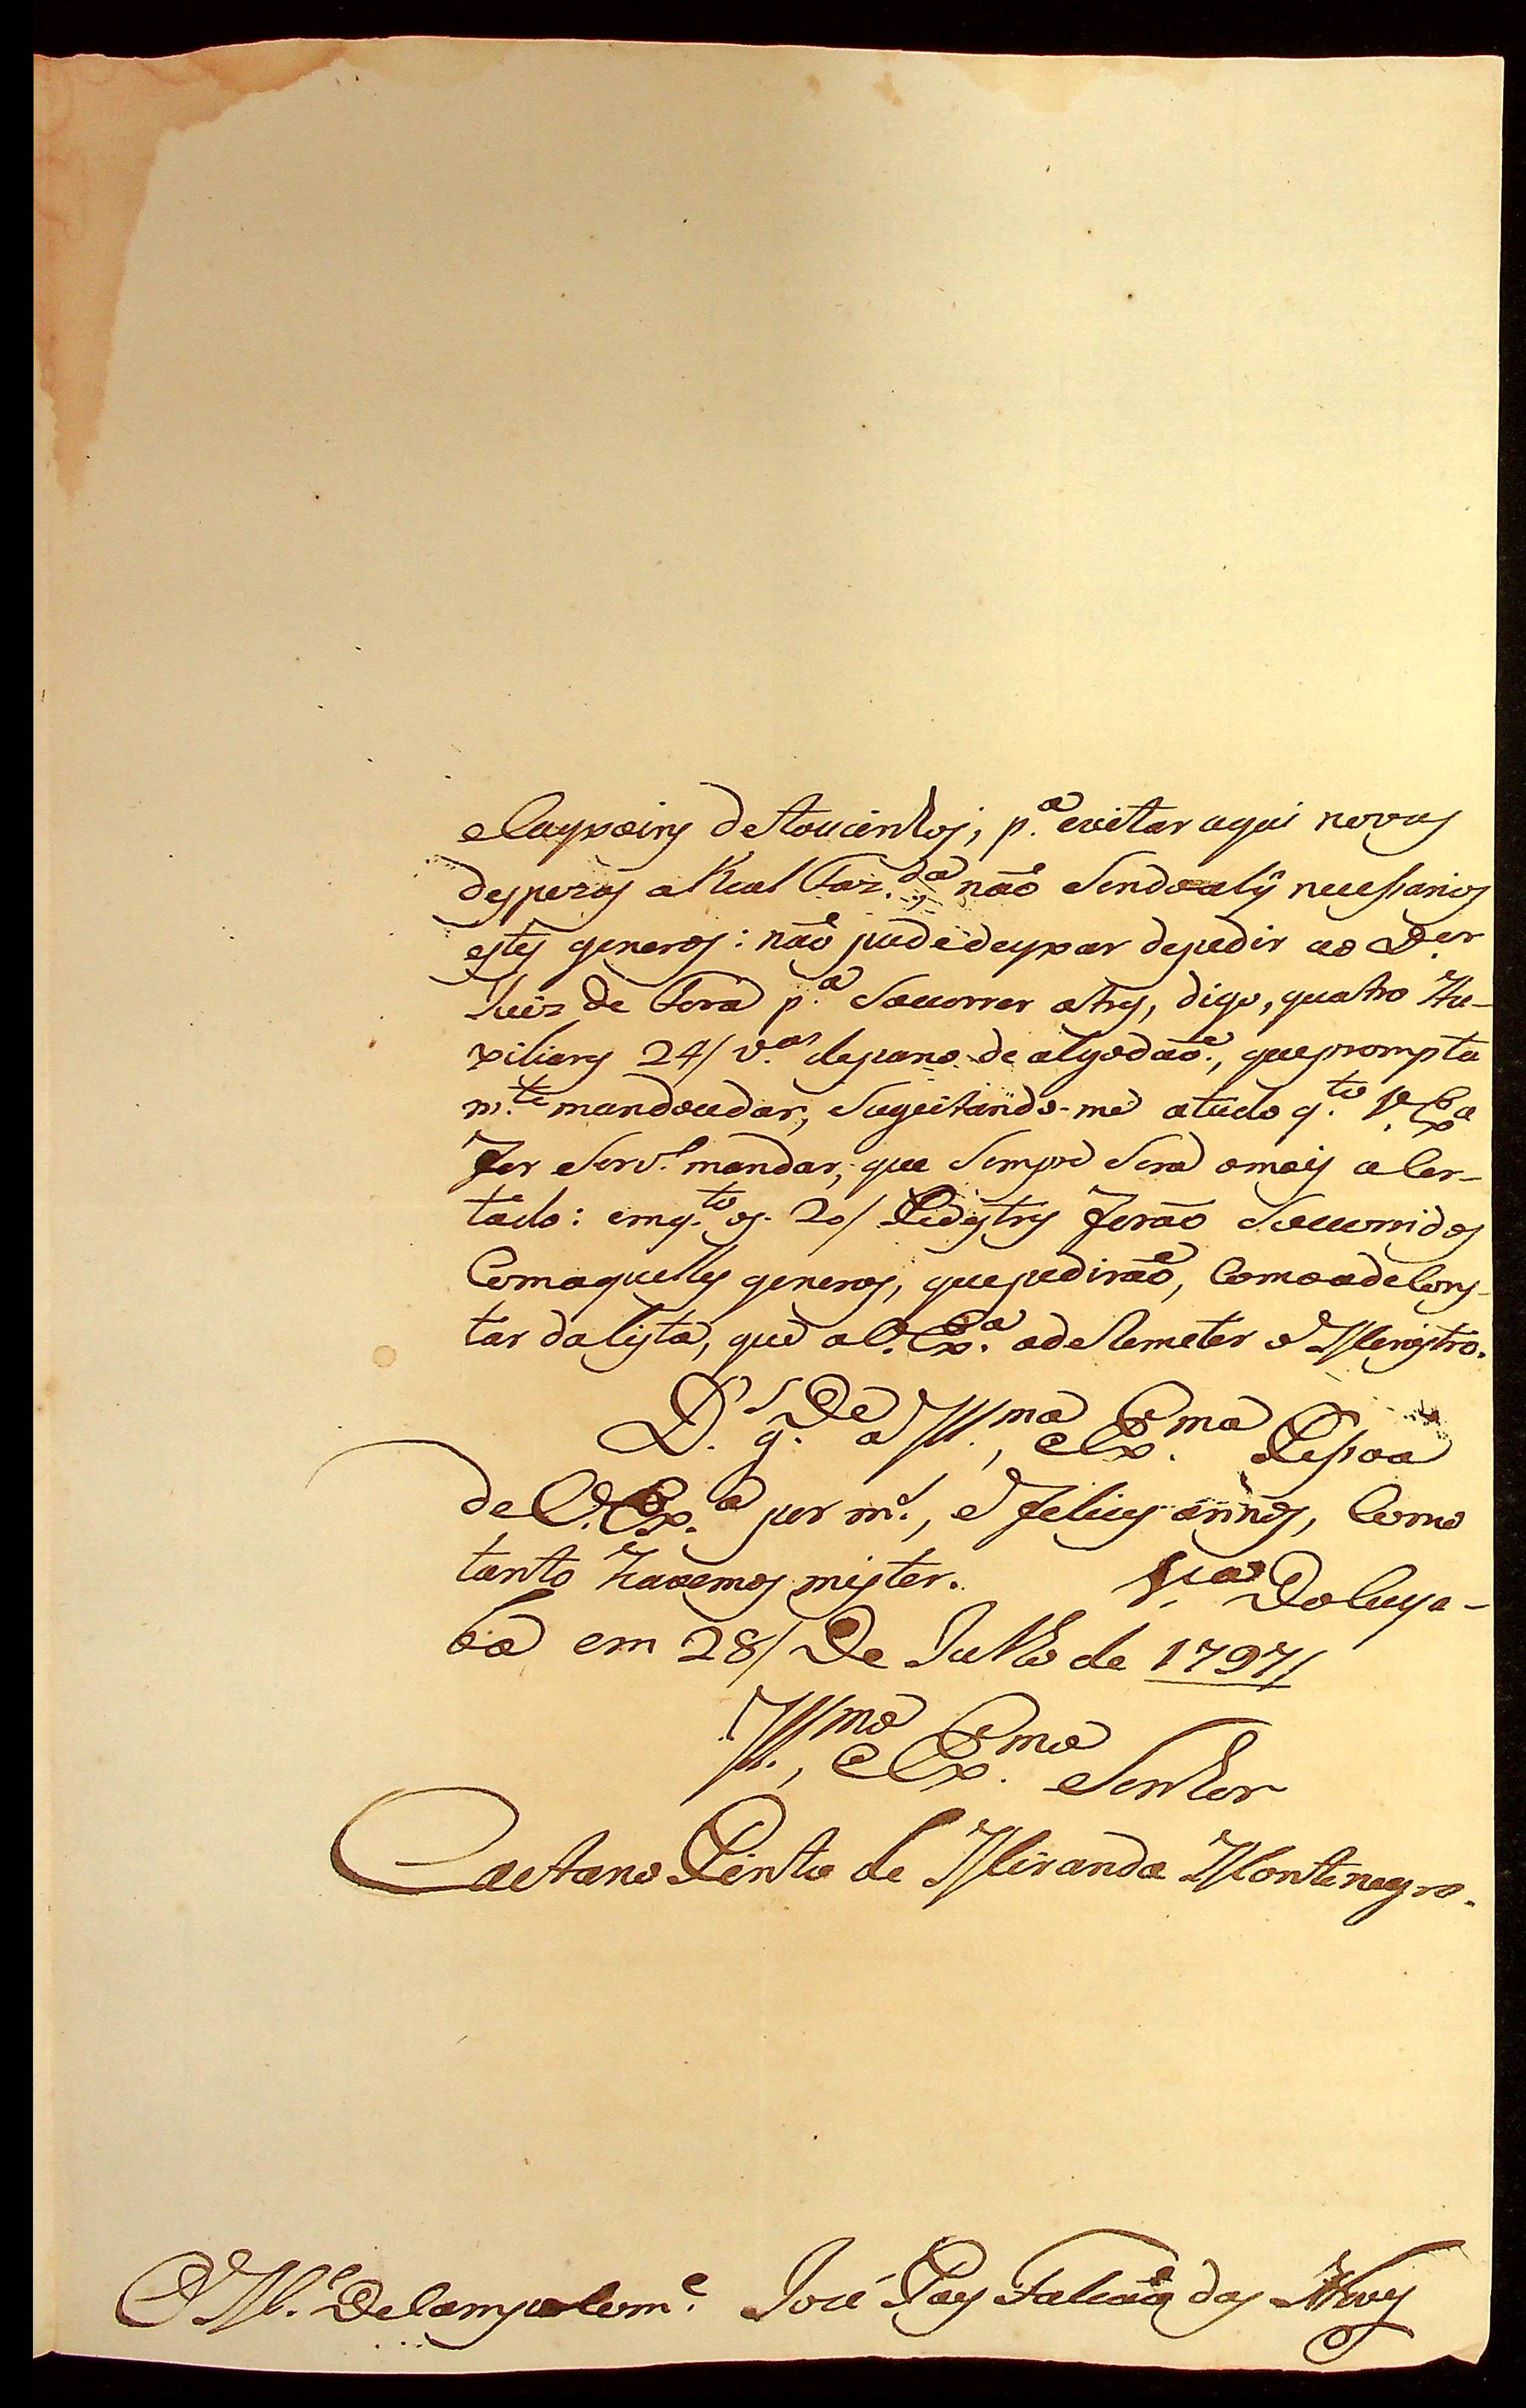 e Cayxoins detoucinhos, p.ª evitar aqui novas
despezas a Real Faz.da, não Sendo aly necessarios
estes generos: não pude deyxar depedir ao D.or
Juiz de Fora p.ª Socorrer a tres, digo, quatro Au-
xiliares 24/ v.as depano de algodaõ, queprompta
m.te mandou dar, Sugeitando-me atudo q.to V. Ex.ª
for Serv.º mandar, que Sempre Será omais acer-
tado: emq.to os 20/ Pedestres forão Socorridos
Comaquelles generos, quepediraõ, Comoadecons-
tar dalista, que a V. Ex.ª adeRemeter o Menistro.
D.s g.de a Ill.ma, e Ex.ma Pessoa
de V. Ex.ª por m.s, e felices annos, Como
tanto havemos mister. V.ª DoCuya-
bá em 28/ De Julho de 1797/
Ill.mo, e Ex.mo Senhor
Caetano Pinto de Miranda Montenegro.
O M.e DeCampo Com.e José Paes Falcaõ das Neves